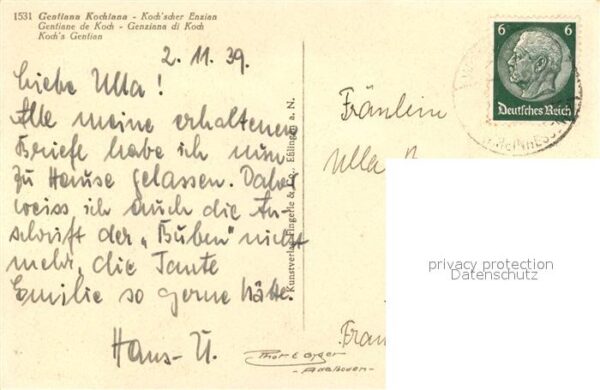 1531 Gentiana Kochiana - Koch'scher Enzian
Gentiane de Koch - Genziana di Koch
Koch's Gentian
2. 11. 39.
Liebe Ulla!
Alle meine erhaltenen
Briefe habe ich nun
zu Hause gelassen. Daher
weiss ich auch die An-
schrift der „Buben" nicht
mehr, die Tante
Emilie so gerne hätte.
Hans-U.
Kunstverlag Fingerle & Co., Eßlingen a. N.
6 6
Deutsches Reich
RHEINHESS
Fräulein
Ulla
privacy protection
Datenschutz
Fran
- Adelboden -